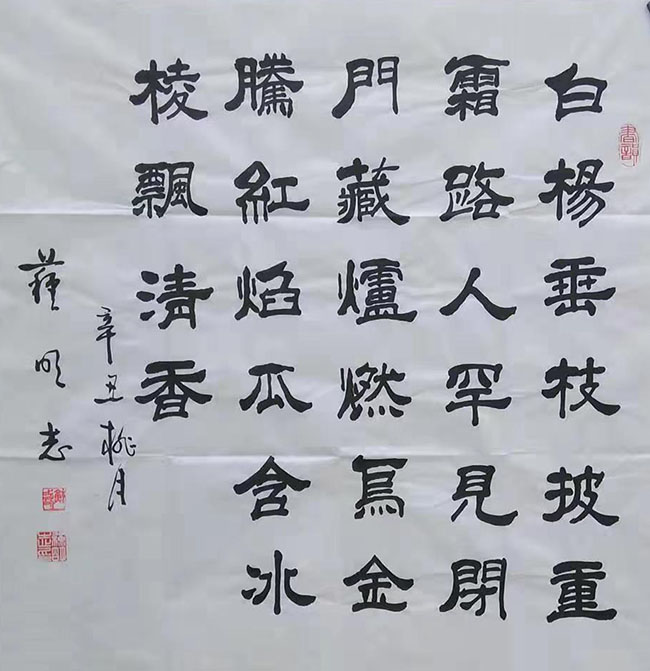 白楊垂枝披重
霜路人罕見閉
門藏爐燃烏金
騰紅焰瓜含冰
棱飄清香
辛丑桃月
明志